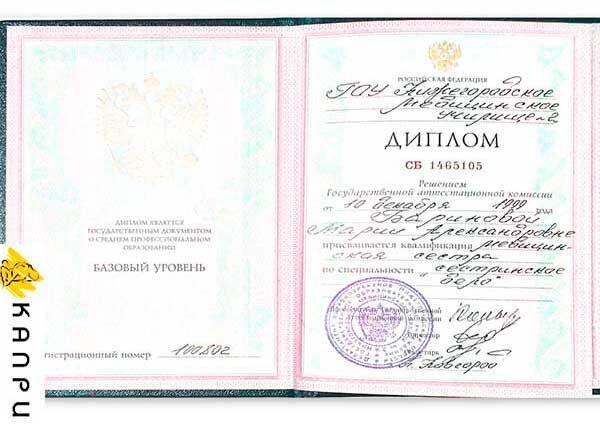 КАПРИ
ДИПЛОМ ЯВЛЯЕТСЯ
ГОСУДАРСТВЕННЫМ ДОКУМЕНТОМ
О СРЕДНЕМ ПРОФЕССИОНАЛЬНОМ
ОБРАЗОВАНИИ
БАЗОВЫЙ УРОВЕНЬ
гистрационный номер 100802
РОССИЙСКАЯ ФЕДЕРАЦИЯ
ГОУ Нижегородское
медицинское
училище
ДИПЛОМ
СБ 1465105
Решением
Государственной аттестационной комиссии
от 10 декабря 1999 года
Бариновой
Марии Александровне
присваивается квалификация медицин-
ская сестра
по специальности "сестринское
дело"
Государственной
аттестационной комиссии
г. Н.Новгород